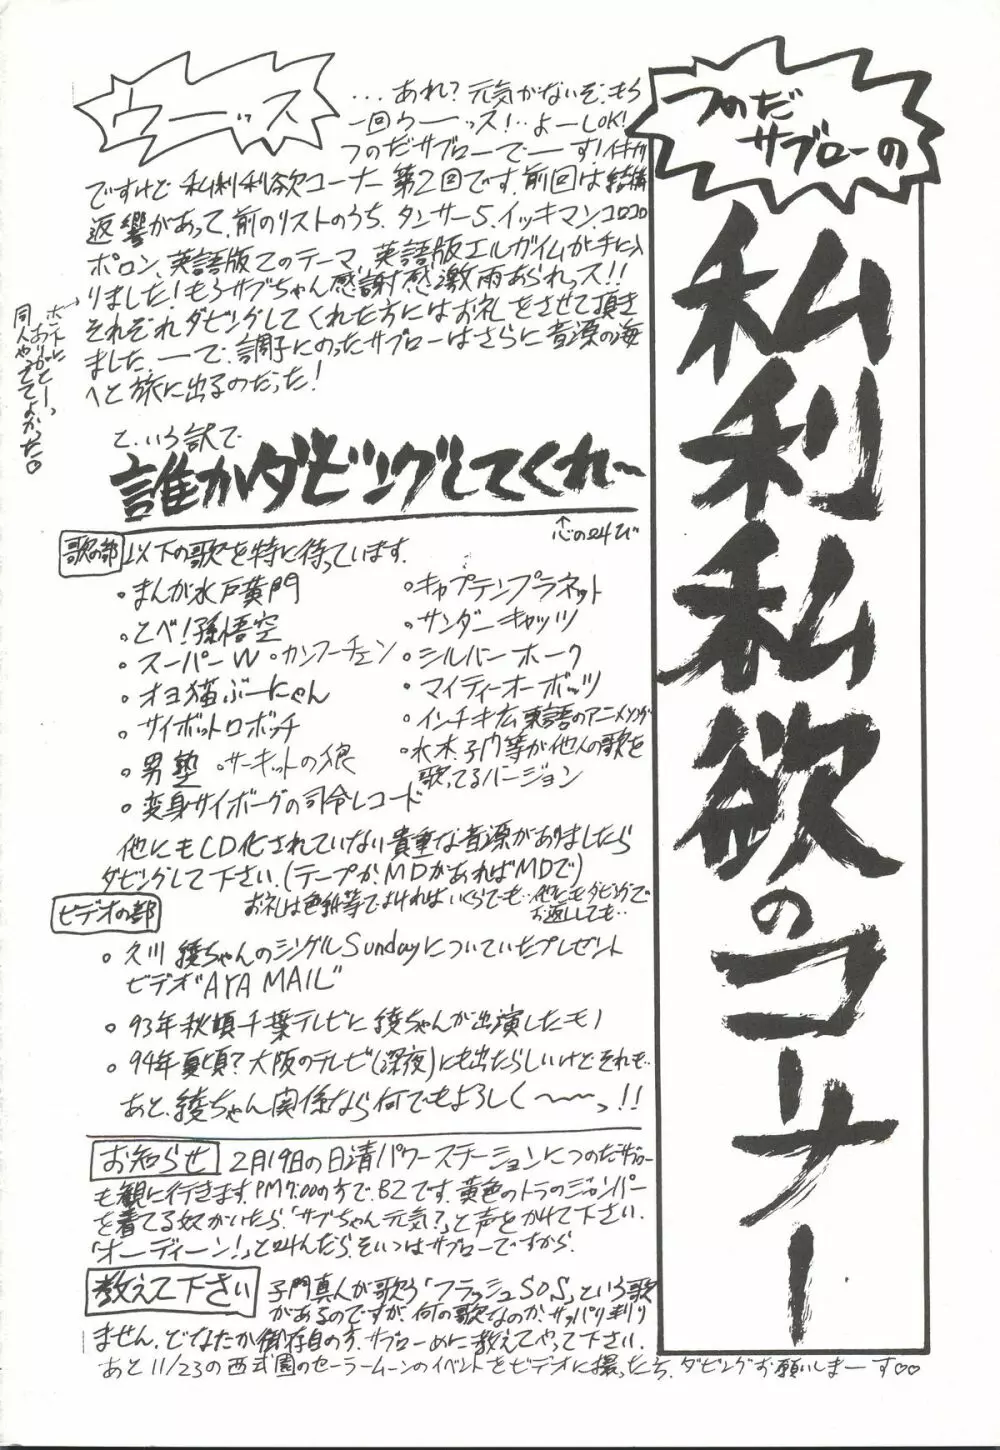 つのだ
サブローの
私利私欲のコーナー
ウーッス
...あれ?元気がないぞ.もう
一回ウーーッス!..よーしOK!
つのだサブローでーーす!イキナリ
ですけど私利私欲コーナー第2回です.前回は結構
返響があって、前のリストのうち、タンサー5.イッキマン.コロコロ
ポロン、英語版Zのテーマ、英語版エルガイムが手に入
りました!もうサブちゃん感謝感激雨あられっス!!
それぞれダビングしてくれた方にはお礼をさせて頂き
ました.ーーで、調子にのったサブローはさらに音源の海
へと旅に出るのだった!
ホントに
ありがとーっ
同人やっててよかった♡
と.いう訳で
誰かダビングしてくれ〜
↑心の叫び
歌の部 以下の歌を特に待っています.
・まんが水戸黄門
・とべ!孫悟空
・スーパーW ・カンフーチェン
・オヨ猫ぶーにゃん
・サイボットロボッチ
・男塾 ・サーキットの狼
・変身サイボーグの司令レコード
・キャプテンプラネット
・サンダーキャッツ
・シルバーホーク
・マイティーオーボッツ
・インチキ広東語のアニメソング
・水木、子門等が他人の歌を
歌ってるバージョン
他にもCD化されていない貴重な音源がありましたら
ダビングして下さい.(テープか、MDがあればMDで)
お礼は色紙等でよければいくらでも..他にもダビングで
お返ししても..
ビデオの部
・久川綾ちゃんのシングルSundayについていたプレゼント
ビデオ"AYA MAIL"
・93年秋頃千葉テレビに綾ちゃんが出演したモノ
・94年夏頃?大阪のテレビ(深夜)にも出たらしいけどそれも..
あと、綾ちゃん関係なら何でもよろしく〜〜っ!!
お知らせ 2月19日の日清パワーステーションにつのだサブロー
も観に行きます.PM7:00の方で.B2です.黄色のトラのジャンパー
を着てる奴がいたら、「サブちゃん元気?」と声をかけて下さい.
「オーディーン!」と叫んだら、そいつはサブローですから.
教えて下さい 子門真人が歌う「フラッシュSOS」という歌
があるのですが、何の歌なのか、サッパリ判り
ません.どなたか御存目の方.サブローめに教えてやって下さい.
あと11/23の西武園のセーラームーンのイベントをビデオに撮ったら、ダビングお願いしまーす♡♡